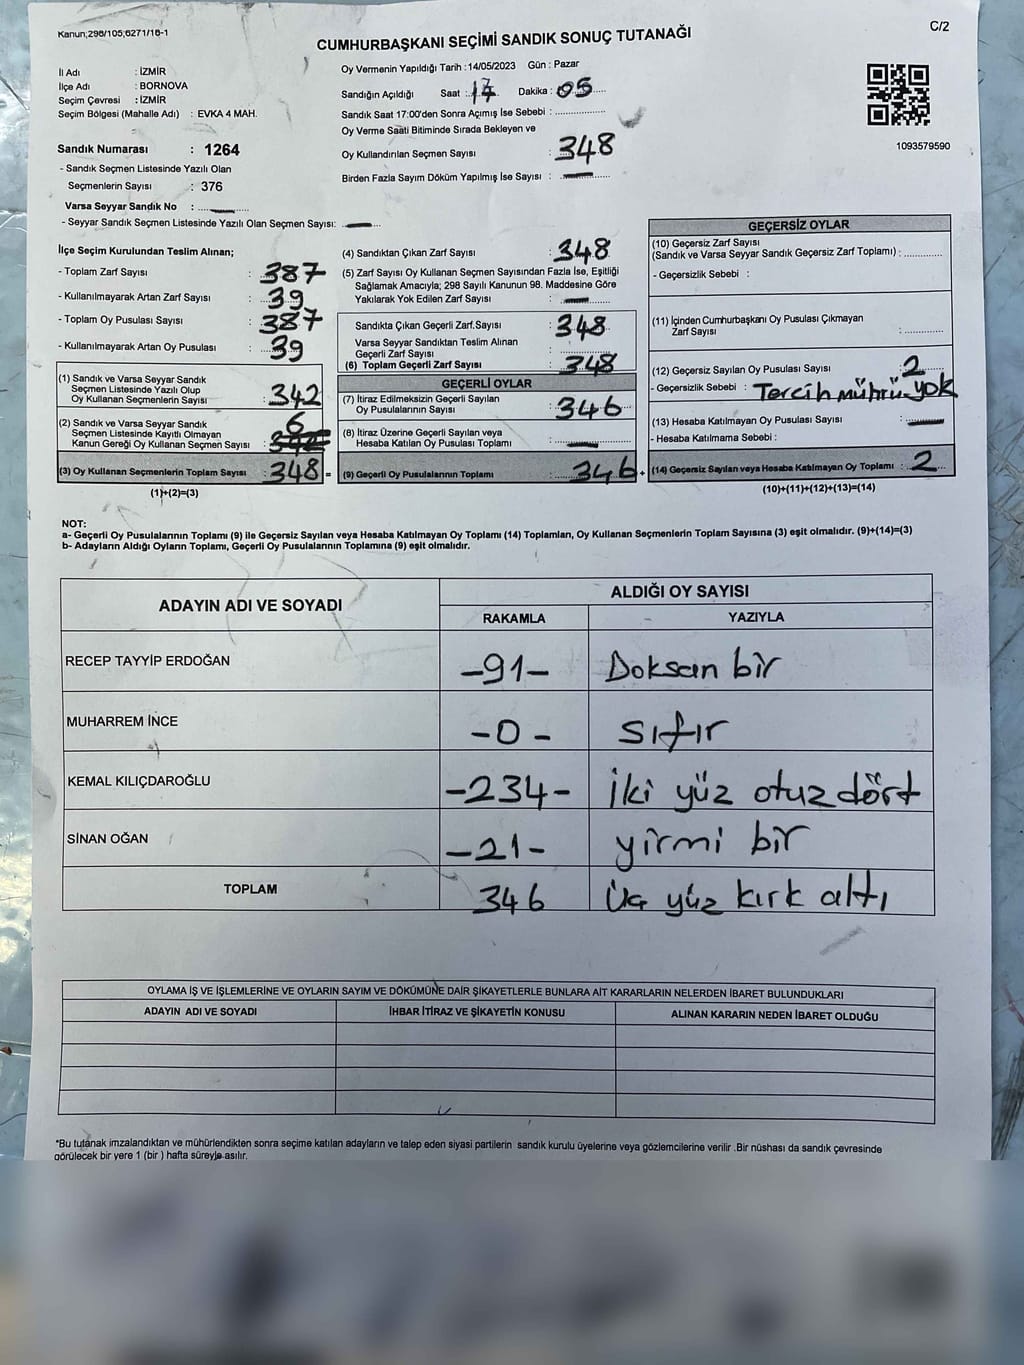 Kanun;298/105;6271/16-1
C/2
CUMHURBAŞKANI SEÇİMİ SANDIK SONUÇ TUTANAĞI
İl Adı : İZMİR
İlçe Adı : BORNOVA
Seçim Çevresi : İZMİR
Seçim Bölgesi (Mahalle Adı) : EVKA 4 MAH.
Sandık Numarası : 1264
- Sandık Seçmen Listesinde Yazılı Olan
Seçmenlerin Sayısı : 376
Varsa Seyyar Sandık No : —
- Seyyar Sandık Seçmen Listesinde Yazılı Olan Seçmen Sayısı: —
Oy Vermenin Yapıldığı Tarih :14/05/2023 Gün : Pazar
Sandığın Açıldığı Saat : 17 Dakika : 05
Sandık Saat 17:00'den Sonra Açımış İse Sebebi :
Oy Verme Saati Bitiminde Sırada Bekleyen ve
Oy Kullandırılan Seçmen Sayısı : 348
Birden Fazla Sayım Döküm Yapılmış İse Sayısı : —
1093579590
İlçe Seçim Kurulundan Teslim Alınan;
- Toplam Zarf Sayısı : 387
- Kullanılmayarak Artan Zarf Sayısı : 39
- Toplam Oy Pusulası Sayısı : 387
- Kullanılmayarak Artan Oy Pusulası : 39
(1) Sandık ve Varsa Seyyar Sandık
Seçmen Listesinde Yazılı Olup
Oy Kullanan Seçmenlerin Sayısı : 342
(2) Sandık ve Varsa Seyyar Sandık
Seçmen Listesinde Kayıtlı Olmayan
Kanun Gereği Oy Kullanan Seçmen Sayısı : 6
(3) Oy Kullanan Seçmenlerin Toplam Sayısı : 348 =
(1)+(2)=(3)
(4) Sandıktan Çıkan Zarf Sayısı : 348
(5) Zarf Sayısı Oy Kullanan Seçmen Sayısından Fazla İse, Eşitliği
Sağlamak Amacıyla; 298 Sayılı Kanunun 98. Maddesine Göre
Yakılarak Yok Edilen Zarf Sayısı : —
Sandıkta Çıkan Geçerli Zarf.Sayısı : 348
Varsa Seyyar Sandıktan Teslim Alınan
Geçerli Zarf Sayısı :
(6) Toplam Geçerli Zarf Sayısı : 348
GEÇERLİ OYLAR
(7) İtiraz Edilmeksizin Geçerli Sayılan
Oy Pusulalarının Sayısı : 346
(8) İtiraz Üzerine Geçerli Sayılan veya
Hesaba Katılan Oy Pusulası Toplamı : —
(9) Geçerli Oy Pusulalarının Toplamı : 346 +
GEÇERSİZ OYLAR
(10) Geçersiz Zarf Sayısı
(Sandık ve Varsa Seyyar Sandık Geçersiz Zarf Toplamı) :
- Geçersizlik Sebebi :
(11) İçinden Cumhurbaşkanı Oy Pusulası Çıkmayan
Zarf Sayısı :
(12) Geçersiz Sayılan Oy Pusulası Sayısı : 2
- Geçersizlik Sebebi : Tercih mührü yok
(13) Hesaba Katılmayan Oy Pusulası Sayısı : —
- Hesaba Katılmama Sebebi :
(14) Geçersiz Sayılan veya Hesaba Katılmayan Oy Toplamı : 2
(10)+(11)+(12)+(13)=(14)
NOT:
a- Geçerli Oy Pusulalarının Toplamı (9) ile Geçersiz Sayılan veya Hesaba Katılmayan Oy Toplamı (14) Toplamları, Oy Kullanan Seçmenlerin Toplam Sayısına (3) eşit olmalıdır. (9)+(14)=(3)
b- Adayların Aldığı Oyların Toplamı, Geçerli Oy Pusulalarının Toplamına (9) eşit olmalıdır.
ADAYIN ADI VE SOYADI
ALDIĞI OY SAYISI
RAKAMLA YAZIYLA
RECEP TAYYİP ERDOĞAN -91- Doksan bir
MUHARREM İNCE -0- sıfır
KEMAL KILIÇDAROĞLU -234- İki yüz otuz dört
SİNAN OĞAN -21- yirmi bir
TOPLAM 346 Üç yüz kırk altı
OYLAMA İŞ VE İŞLEMLERİNE VE OYLARIN SAYIM VE DÖKÜMÜNE DAİR ŞİKAYETLERLE BUNLARA AİT KARARLARIN NELERDEN İBARET BULUNDUKLARI
ADAYIN ADI VE SOYADI İHBAR İTİRAZ VE ŞİKAYETİN KONUSU ALINAN KARARIN NEDEN İBARET OLDUĞU
*Bu tutanak imzalandıktan ve mühürlendikten sonra seçime katılan adayların ve talep eden siyasi partilerin sandık kurulu üyelerine veya gözlemcilerine verilir .Bir nüshası da sandık çevresinde
görülecek bir yere 1 (bir ) hafta süreyle asılır.